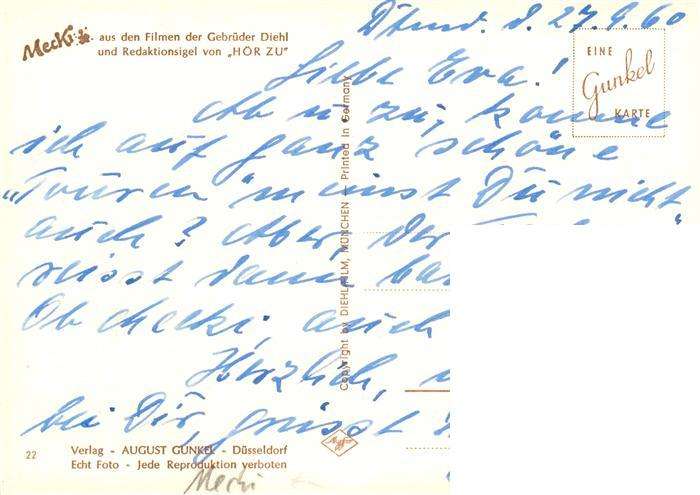 Mecki aus den Filmen der Gebrüder Diehl
und Redaktionsigel von „HÖR ZU“
d. 27.9.60
EINE
Gunkel
KARTE
Liebe Eva!
Ab u. zu, komme
ich auf ganz schöne
„Touren“ meinst Du nicht
auch? Aber, der
reisst dann
Ob checki auch
Herzlich,
bei Dir, grüsst
Copyright by DIEHL-FILM, MÜNCHEN — Printed in Germany
22
Verlag - AUGUST GUNKEL - Düsseldorf
Echt Foto - Jede Reproduktion verboten
Mecki